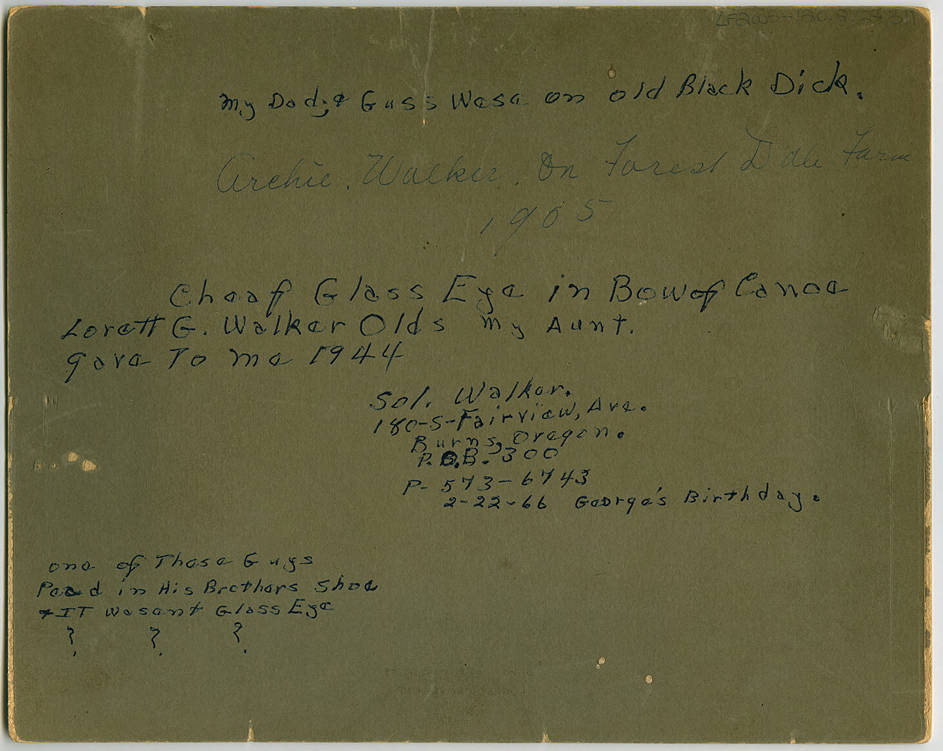 My Dad, & Guss Wasa on old Black Dick.
Archie. Walker. On Forest Dale Farm
1905
Cheaf Glass Eye in Bow of Canoe
Lorett G. Walker Olds my Aunt.
gave To me 1944
Sol. Walker.
180-S-Fairview, Ave.
Burns, Oregon.
P.O.B. 300
P- 573-6743
2-22-66 George's Birthday.
one of These Guys
Peed in His Brothers Shoe
& IT Wasent Glass Eye
? ? ?